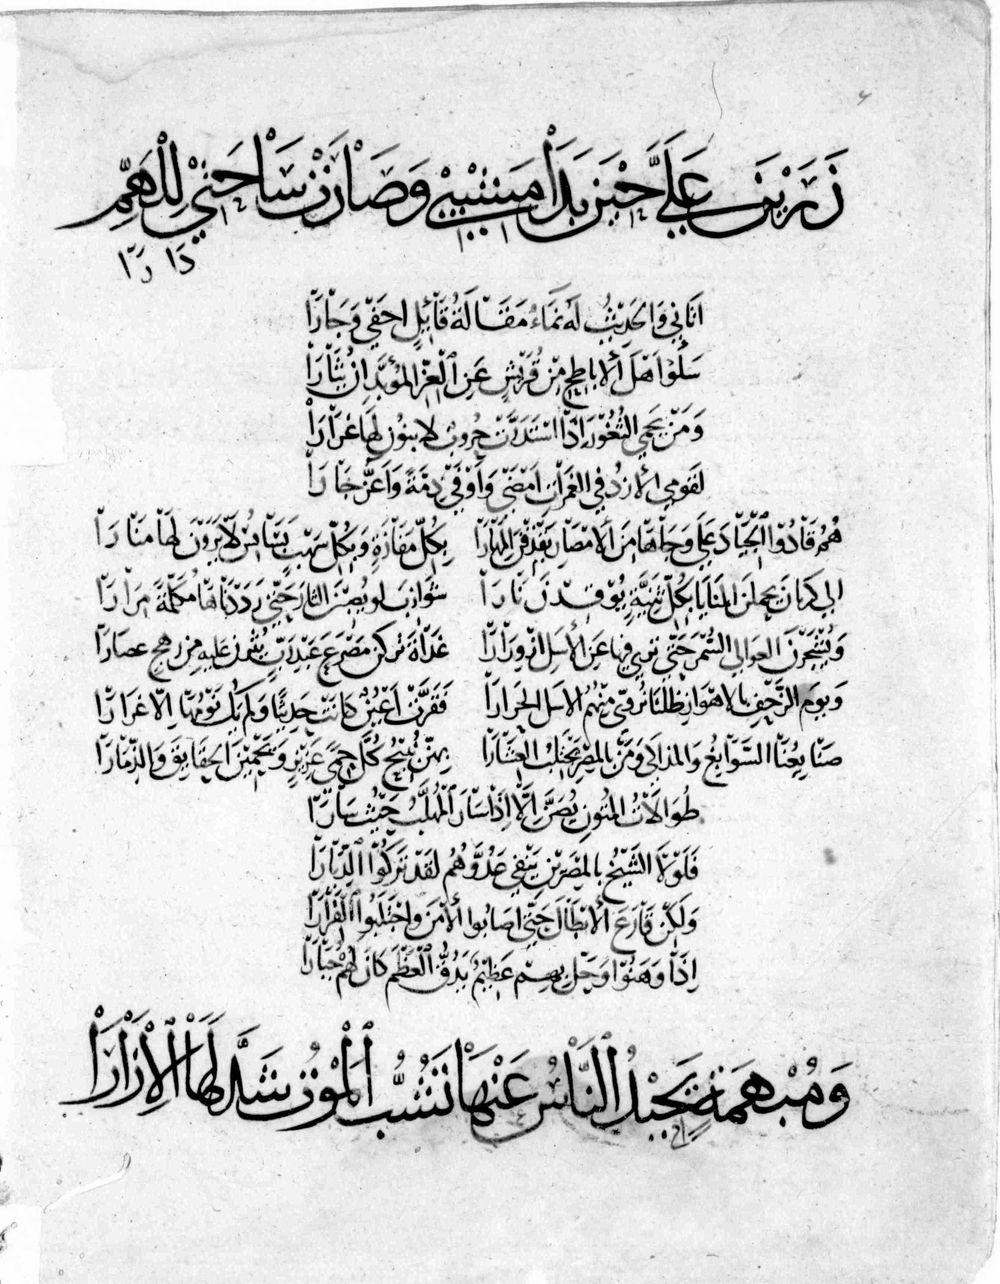 زَرَيْنَ عَلَيَّ حِيْنَ بَدَا مَشِيْبِيْ وَصَارَتْ سَاحَتِيْ لِلْهَمِّ
دَا رَا
اَتَانِي وَالحَدِيْثُ لَهُ نَمَاءٌ مَقَالَةُ قَائِلٍ احَفَى وَجَارَا
سَلُوْا اَهْلَ الأباطِحِ مِنْ قُرَيْشٍ عَنِ الْعِزِّ المُؤبَّدِ ان
وَمَنْ يَحْمِي الثُّغُوْرَ إذَا اسْتَدَرَّتْ حُرُوْبٌ لا يَنُوْنَ لَهَا غِرَارَا
لقَومِي الأزدُ في الغَمَراتِ امْضَى وَاَوْفَى ذِمَّةً وَاَعَزُّ جَارَا
هُمُ قَادُوْا الْجِيَادَ عَلَى وَجَاهَا مِنَ الأمْصَارِ يَقْذِفْنَ المِهَارَا بِكُلِّ مَفَازَةٍ وَبِكُلِّ سَهْبٍ بَسَابِسَ لَا يَرَوْنَ لَهَا مَنَارَا
الى كرمانَ يَحمِلنَ المنَايَا بِكُلِّ ثَنِيَّةٍ يُوْقِدْنَ نَارَا شَوَازِبَ لم يُصِبْنَ الثارَ حَتَّى رَدَدْنَاهَا مُكَلَّمَةً مِرَارَا
وَيُشْجِرْنَ العَوالِي السُّمْرَ حَتّى تَرى فيهَا عَنِ الأسَلِ ازْوِرَارَا غَدَاةَ تَرَكْنَ مَصْرَعَ عَبْدِ رَبٍّ يُثِرْنَ عَلَيهِ مِن رَهَجٍ عصَارَا
وَيَومَ الزَّحْفِ بالاهْوَازِ ظلنَا نُرَوّي مِنْهُمُ الاسَلَ الحِرَارَا فَقَرَّتْ اَعْيُنٌ كانَتْ حَدِيْثًا وَلَم يَكُ نَوْمُهَا الّا غِرَارَا
صَنَايِعُنَا السَّوَابِغُ وَالمذاكِي وَمَنْ بالمِصْرِ يَحْتَلِبُ العِشَارَا بِهِنَّ نُبِيْحُ كُلَّ حِمًى عَزِيْزٍ وَيَحْمِيْنَ الحَقَايِقَ وَالذِّمَارَا
طُوَالَاتُ المُتُونِ يُصَنَّ اِلَّا اِذَا سَارَ الْمُهَلَّبُ حَيْثُ سَارَا
فَلَوْلَا الشَّيْخُ بالمِصْرَيْنِ يَنْفِي عَدُوَّهُمُ لقَدْ تَرَكُوْا الدِّيَارَا
وَلَكِنْ قَارَعَ الأبْطَالَ حَتّى اصَابُوا الأمْنَ وَاجْتَلَبُوا الْقَرَارَا
إِذَا وَهَنُوْا وَحَلَّ بِهِم عَظِيْمٌ يَدُقُّ الْعَظْمَ كَانَ لَهُمْ جُبَارَا
وَمُبْهَمَةٍ يَحِيْدُ النَّاسُ عَنْهَا تَشُبُّ الْمَوْتَ شَدَّ لَهَا الْاِزَارَا